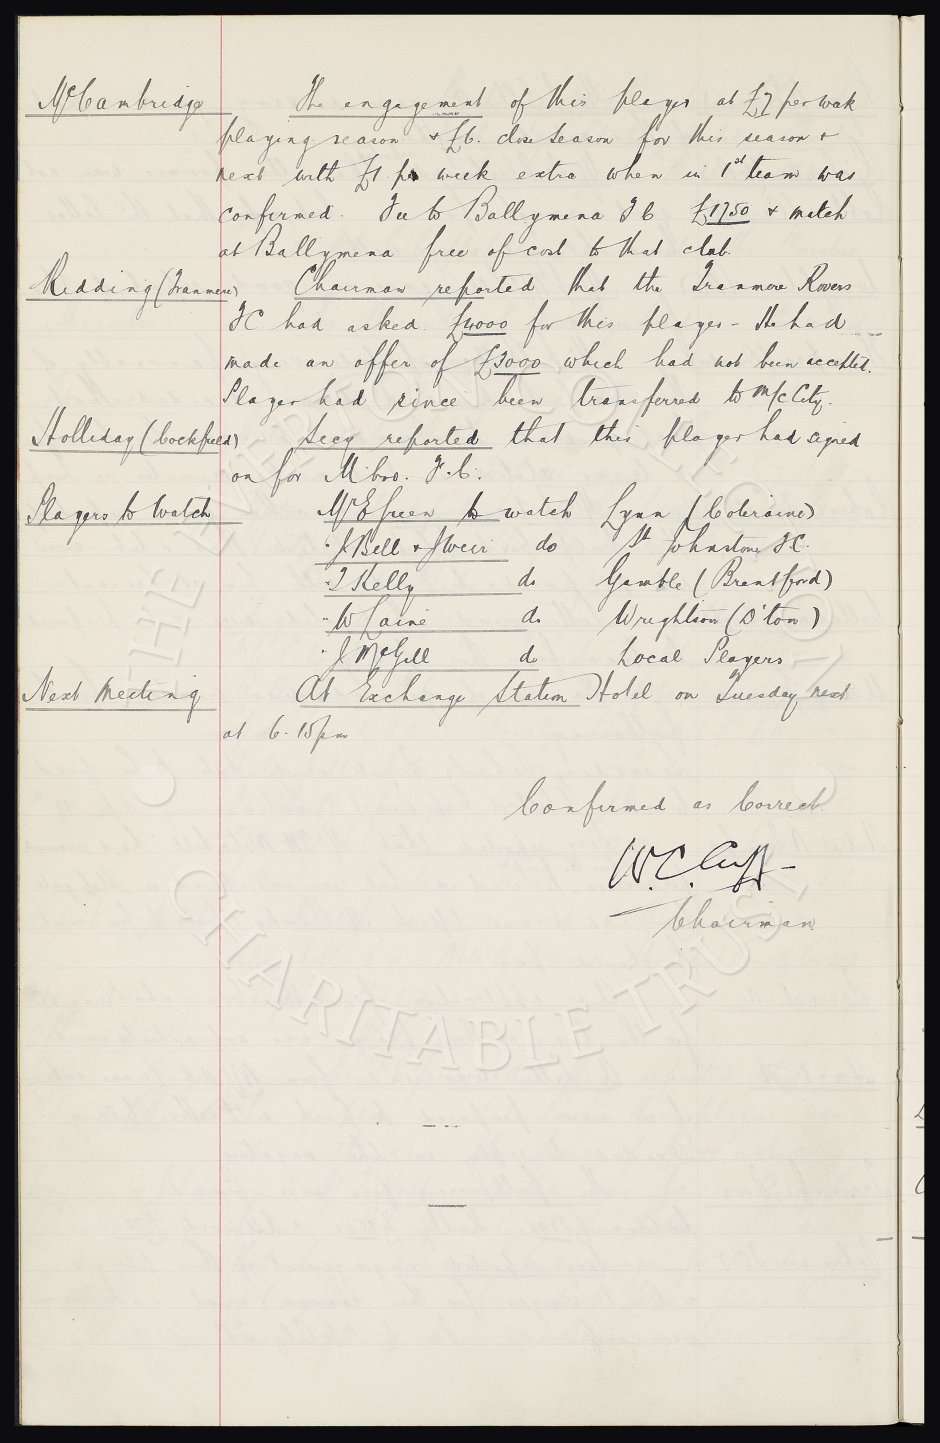 McCambridge The engagement of this player at £7 per week
playing season & £6. close season for this season &
next with £1 per week extra when in 1st team was
confirmed. Fee to Ballymena F C £1750 & match
at Ballymena free of cost to that club.
Ridding (Tranmere) Chairman reported that the Tranmere Rovers
FC had asked £4000 for this player - He had
made an offer of £3000 which had not been accepted.
Player had since been transferred to M/c City.
Holliday (Cockfield) Secy reported that this player had signed
on for M'bro. F.C.
Players to Watch Mr E Green to watch Lynn (Coleraine)
" J Bell & J Weir do St Johnstone F.C.
" T Kelly do Gamble (Brentford)
" W Laine do Wrightson (D'ton)
" J McGill do Local Players
Next Meeting At Exchange Station Hotel on Tuesday next
at 6.15pm
Confirmed as Correct.
W.C. Cuff
Chairman
THE EVERTON COLLECTION
CHARITABLE TRUST